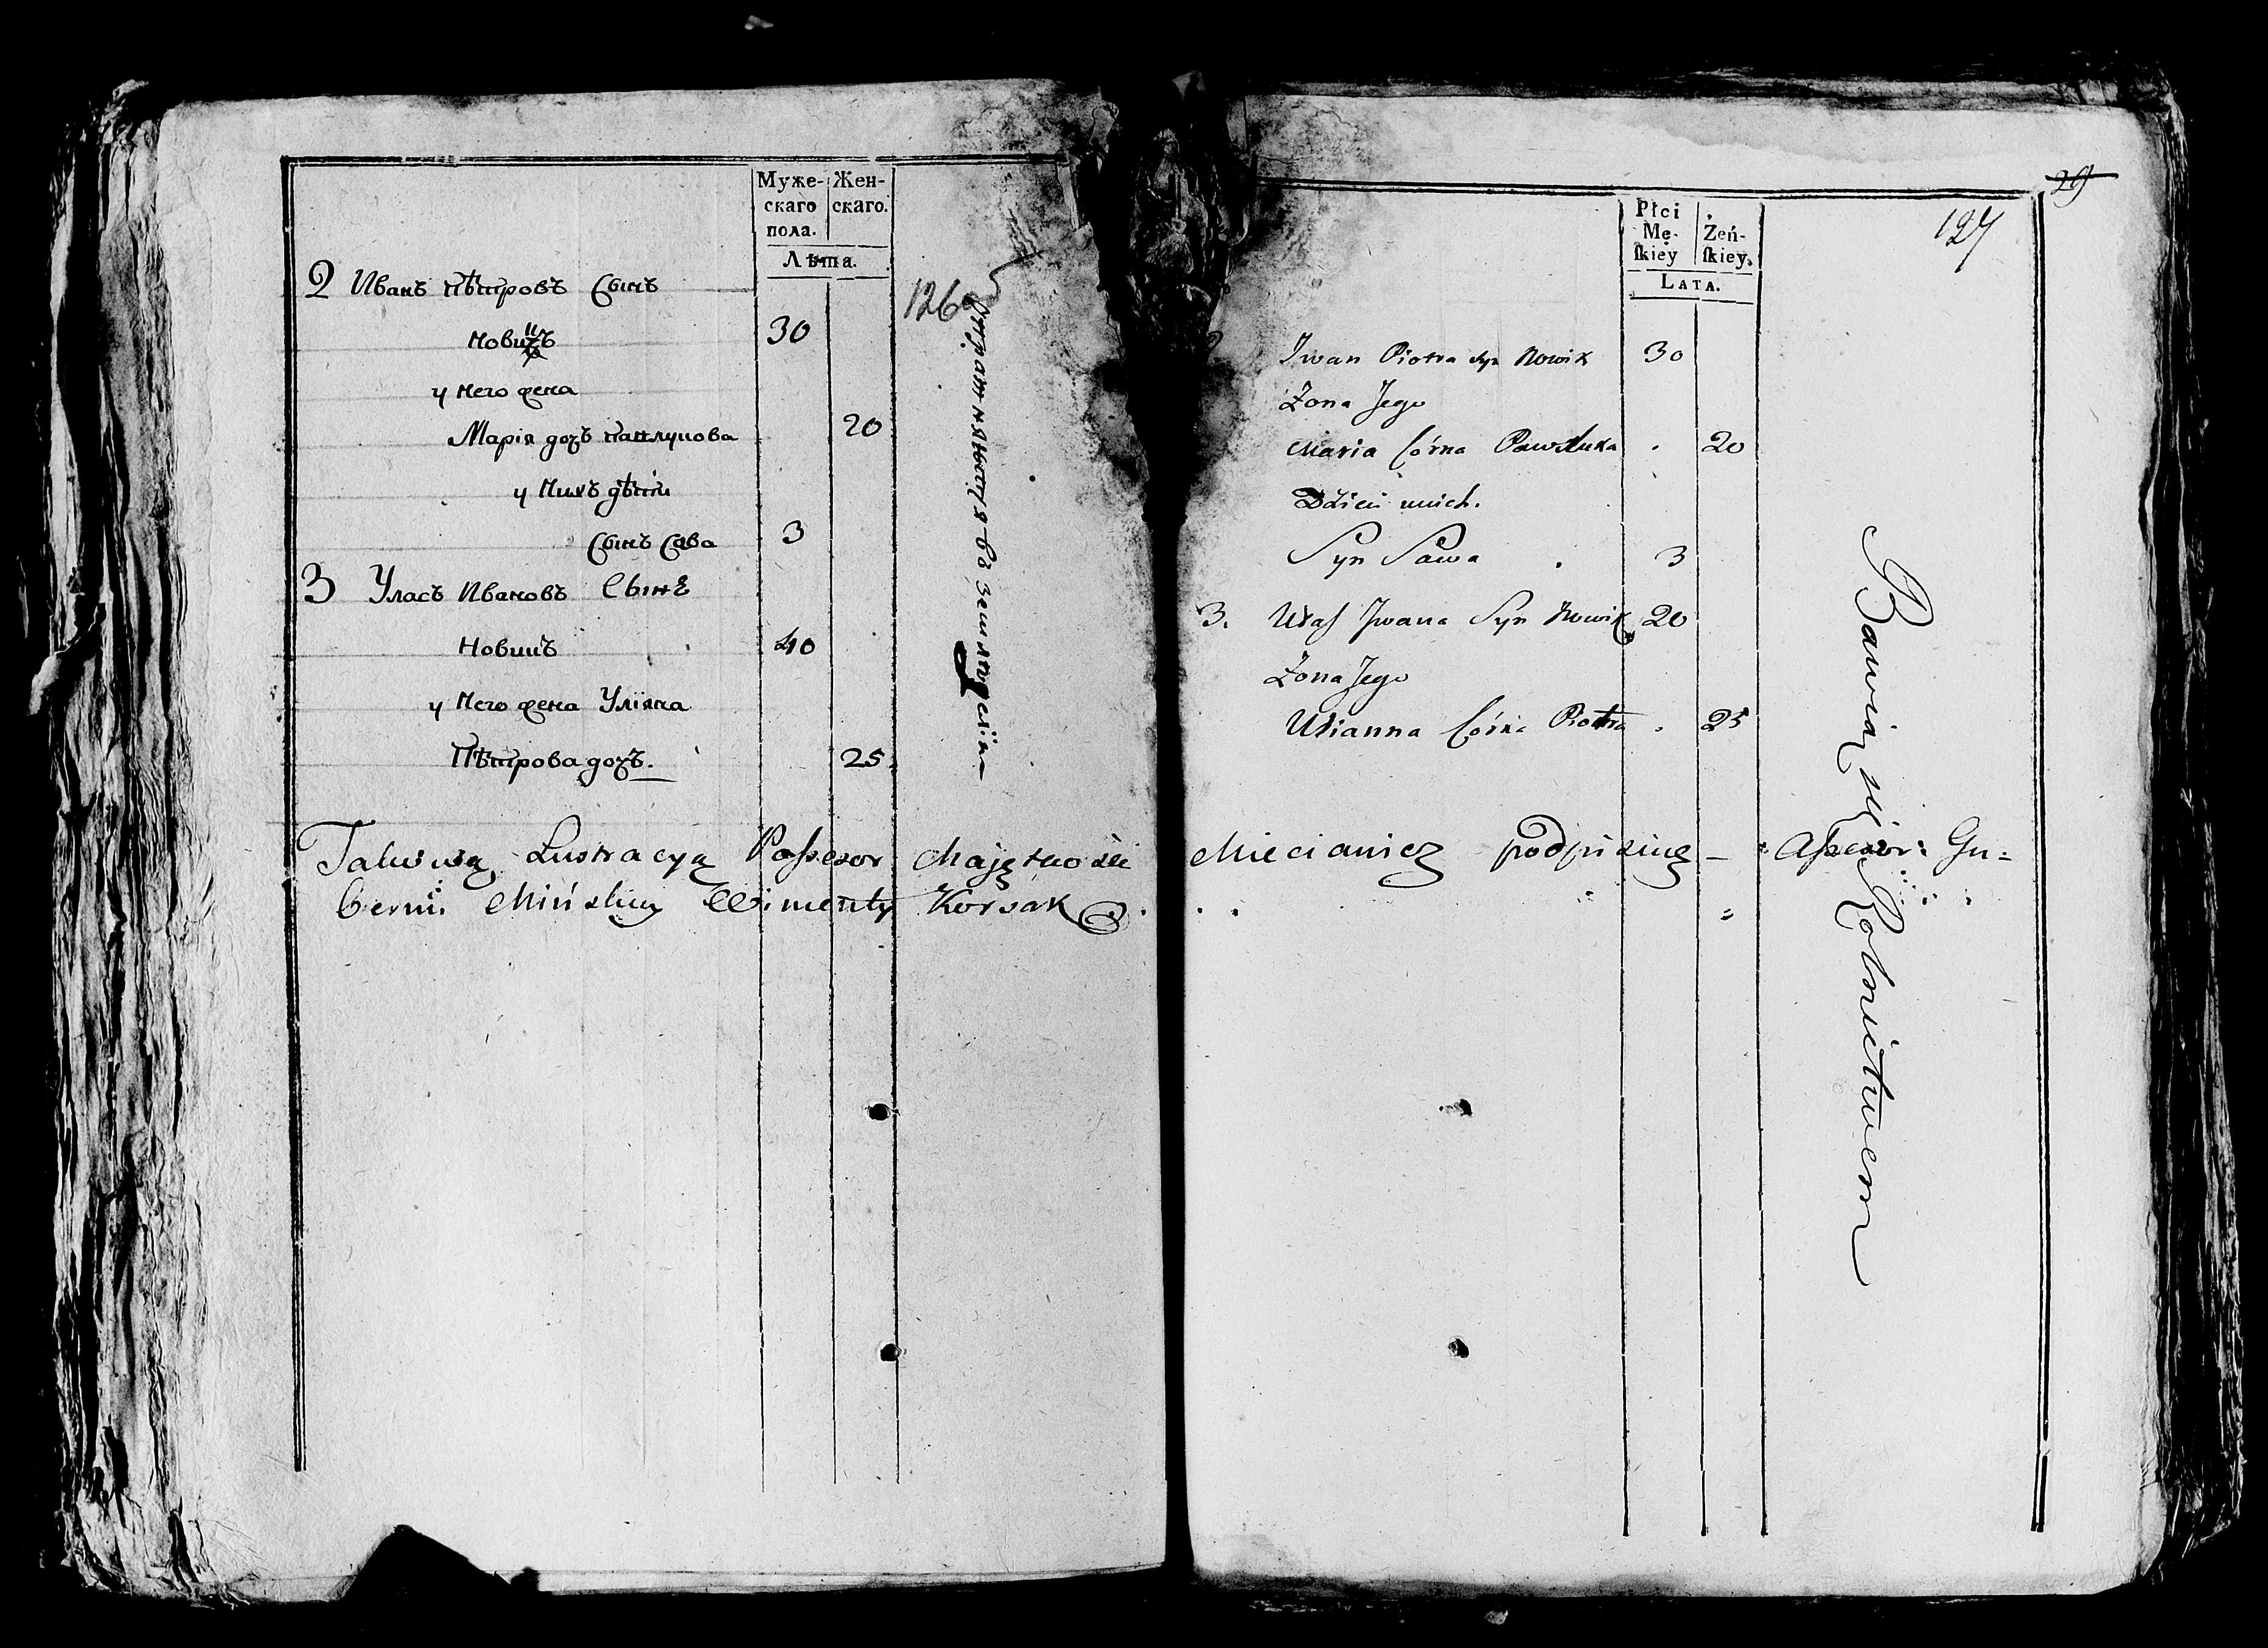 Муже-
скаго
пола.
Жен-
скаго.
Лѣта.
126
2 Иванъ пѣтровъ Сынъ
Новикъ 30
у Него жена
Марія дочъ павлукова 20
у Нихъ дѣти
Сынъ Сава 3
3 Уласъ Ивановъ Сынъ
Новикъ 40
у Него жена Уліяна
Пѣтрова дочъ. 25
29
127
Płci
Mę-
ſkiey
Żeń-
ſkiey.
LATA.
Iwan Piotra syn Nowik 30
Żona Jego
Maria Córka Pawluka 20
Dzieci unich.
Syn Sawa 3
3. Ułas Jwana Syn Nowik 20
Żona Jego
Ulianna Córka Piotra 25
Bawią się Rolnictwem
Takowąą Lustracyą Possesor Majętności Mieciawicz podpisuię – Assesor: Gu=
berni: Mińskiey Klimenty Korsak